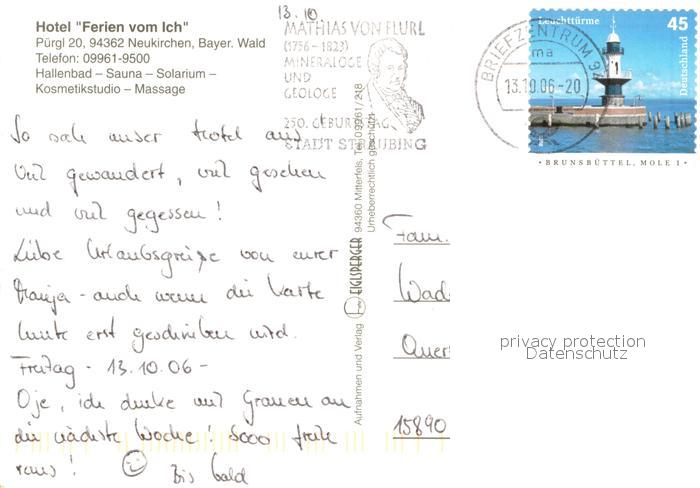 13.10
Hotel "Ferien vom Ich"
Pürgl 20, 94362 Neukirchen, Bayer. Wald
Telefon: 09961-9500
Hallenbad – Sauna – Solarium –
Kosmetikstudio – Massage
MATHIAS VON FLURL
(1756 – 1823)
MINERALOGE
UND
GEOLOGE
250. GEBURTSTAG
STADT STRAUBING
BRIEFZENTRUM 94
ma
13.10.06-20
Leuchttürme
45
Deutschland
• BRUNSBÜTTEL, MOLE 1 •
So sah unser Hotel aus!
Viel gewandert, viel gesehen
und viel gegessen!
Liebe Urlaubsgrüße von eurer
- auch wenn die Karte
heute erst geschrieben wird.
Freitag - 13.10.06 -
Oje, ich denke mit Grauen an
die nächste Woche! Sooo früh
raus! Bis bald
Aufnahmen und Verlag EIGLSPERGER 94360 Mitterfels, Tel. 09961/218
Urheberrechtlich geschützt
Fam.
Wad
Quer
15890
privacy protection
Datenschutz